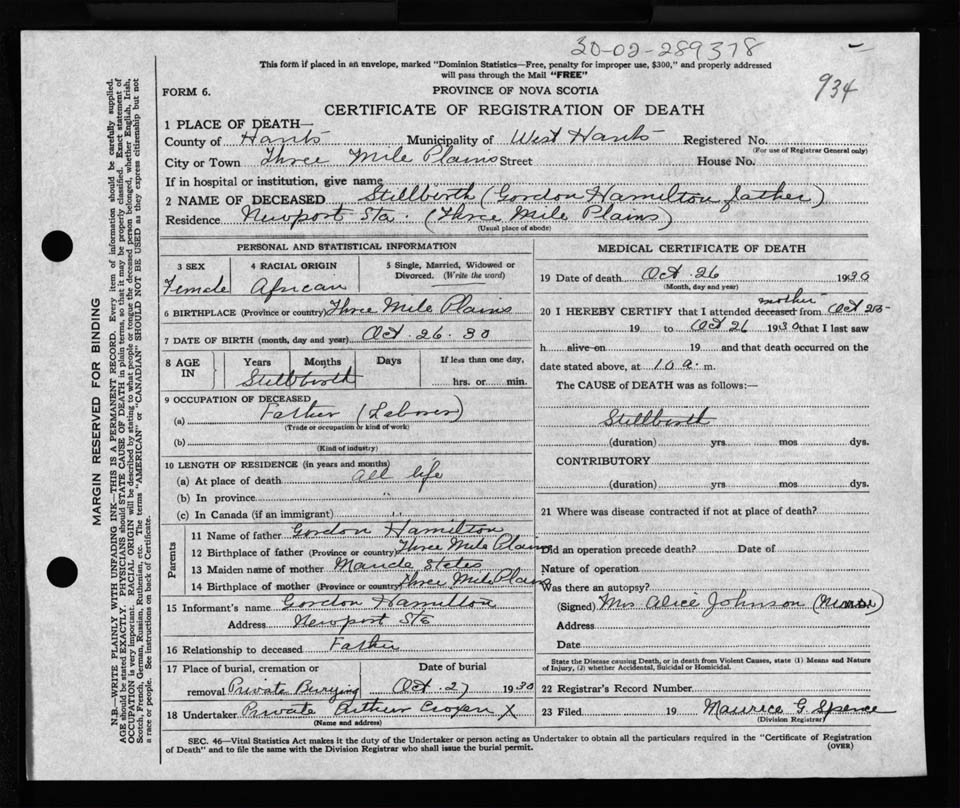 30-02-289378
934
This form if placed in an envelope, marked "Dominion Statistics—Free, penalty for improper use, $300," and properly addressed
will pass through the Mail "FREE"
FORM 6.
PROVINCE OF NOVA SCOTIA
CERTIFICATE OF REGISTRATION OF DEATH
1 PLACE OF DEATH—
County of Hants Municipality of West Hants Registered No.
(For use of Registrar General only)
City or Town Three Mile Plains Street House No.
If in hospital or institution, give name
2 NAME OF DECEASED Stillbirth (Gordon Hamilton father)
Residence Newport Sta. (Three Mile Plains)
(Usual place of abode)
MARGIN RESERVED FOR BINDING
N.B.—WRITE PLAINLY WITH UNFADING INK—THIS IS A PERMANENT RECORD. Every item of information should be carefully supplied.
AGE should be stated EXACTLY. PHYSICIANS should STATE CAUSE OF DEATH in plain terms, so that it may be properly classified. Exact statement of
OCCUPATION is very important. RACIAL ORIGIN will be described by stating to what people or tongue the deceased person belonged, whether English, Irish,
Scotch, French, German, Russian, Ruthenian, etc. The terms "AMERICAN" or "CANADIAN" SHOULD NOT BE USED as they express citizenship but not
a race or people. See instructions on back of Certificate.
PERSONAL AND STATISTICAL INFORMATION
3 SEX
Female
4 RACIAL ORIGIN
African
5 Single, Married, Widowed or
Divorced. (Write the word)
6 BIRTHPLACE (Province or country) Three Mile Plains
7 DATE OF BIRTH (month, day and year) Oct. 26. 30
8 AGE
IN
Years Months Days If less than one day,
Stillbirth
hrs. or min.
9 OCCUPATION OF DECEASED
(a) Father (Laborer)
(Trade or occupation or kind of work)
(b)
(Kind of industry)
10 LENGTH OF RESIDENCE (in years and months)
(a) At place of death all life
(b) In province "
(c) In Canada (if an immigrant)
Parents
11 Name of father Gordon Hamilton
12 Birthplace of father (Province or country) Three Mile Plains
13 Maiden name of mother Maude States
14 Birthplace of mother (Province or country) Three Mile Plains
15 Informant's name Gordon Hamilton
Address Newport Sta
16 Relationship to deceased Father
17 Place of burial, cremation or Date of burial
removal Private Burying Oct. 27 1930
18 Undertaker Private Arthur X
(Name and address)
MEDICAL CERTIFICATE OF DEATH
19 Date of death Oct. 26 1930
(Month, day and year)
mother
20 I HEREBY CERTIFY that I attended deceased from Oct
19 to Oct 26 1930 that I last saw
h alive on 19 and that death occurred on the
date stated above, at 10 a. m.
The CAUSE of DEATH was as follows:—
Stillbirth
(duration) yrs mos dys.
CONTRIBUTORY
(duration) yrs mos dys.
21 Where was disease contracted if not at place of death?
Did an operation precede death? Date of
Nature of operation
Was there an autopsy?
(Signed) Mrs Alice Johnson
Address
Date
State the Disease causing Death, or in death from Violent Causes, state (1) Means and Nature
of Injury, (2) whether Accidental, Suicidal or Homicidal.
22 Registrar's Record Number
23 Filed 19 Maurice G. Spence
(Division Registrar)
SEC. 46—Vital Statistics Act makes it the duty of the Undertaker or person acting as Undertaker to obtain all the particulars required in the "Certificate of Registration
of Death" and to file the same with the Division Registrar who shall issue the burial permit.
(OVER)